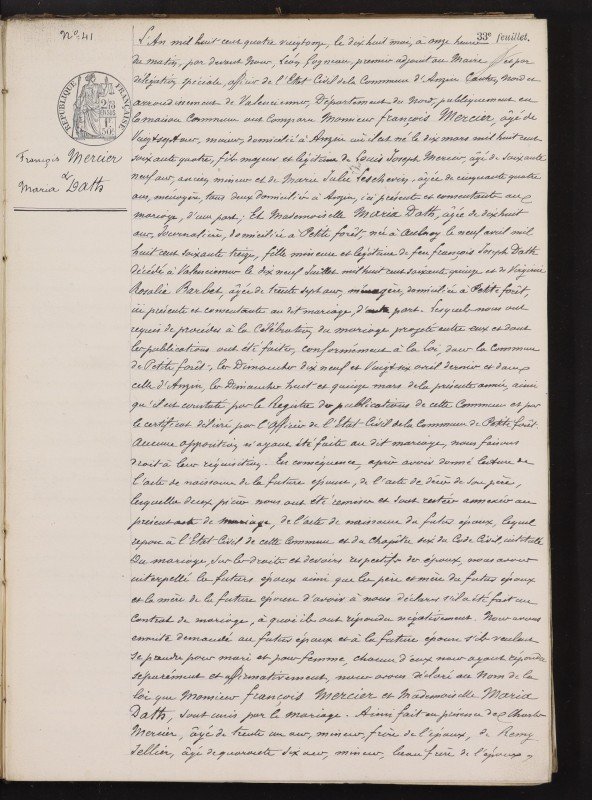 33e feuillet.
No 41
L'An mil huit cent quatre vingt onze, le dix huit mai, à onze heures
du matin, par devant Nous, Léon Cogneau, premier adjoint au Maire et par
délégation spéciale, officier de l'Etat Civil de la Commune d'Anzin Canton Nord
arrondissement de Valenciennes, Département du Nord, publiquement en
la maison Commune ont comparu Monsieur François Mercier, âgé de
Vingt sept ans, mineur, domicilié à Anzin où il est né le dix mars mil huit cent
soixante quatre, fils majeur et légitime de Louis Joseph Mercier, âgé de soixante
neuf ans, ancien mineur et de Marie Julie Lescherez, âgée de cinquante quatre
ans, ménagère, tous deux domiciliés à Anzin, ici présents et consentants au
mariage, d'une part; Et Mademoiselle Maria Dath, âgée de dix huit
ans, Journalière, domiciliée à Petite forêt, née à Aulnoy le neuf avril mil
huit cent soixante treize, fille mineure et légitime de feu François Joseph Dath
décédé à Valenciennes le dix neuf Juillet mil huit cent soixante quinze et de Virginie
Rosalie Barbet, âgée de trente sept ans, ménagère, domiciliée à Petite forêt,
ici présente et consentante au dit mariage, d'autre part. Lesquels nous ont
requis de procéder à la Célébration du mariage projeté entre eux et dont
les publications ont été faites, conformément à la loi, dans la Commune
de Petite forêt, les Dimanches dix neuf et Vingt six avril dernier et dans
celle d'Anzin, les Dimanches huit et quinze mars de la présente année, ainsi
qu'il est constaté par le Registre des publications de cette Commune et par
le certificat délivré par l'Officier de l'Etat Civil de la Commune de Petite forêt.
Aucune opposition n'ayant été faite au dit mariage, nous faisons
droit à leur réquisition. En conséquence, après avoir donné lecture de
l'acte de naissance de la future épouse, de l'acte de décès de son père,
lesquelles deux pièces nous ont été remises et sont restées annexées au
présent acte de mariage, de l'acte de naissance du futur époux, lequel
repose à l'Etat Civil de cette Commune et du Chapitre six du Code Civil, intitulé
Du mariage, sur les droits et devoirs respectifs des époux, nous avons
interpellé les futurs époux ainsi que les père et mère du futur époux
et la mère de la future épouse d'avoir à nous déclarer s'il a été fait un
Contrat de mariage, à quoi ils ont répondu négativement. Nous avons
ensuite demandé au futur époux et à la future épouse s'ils veulent
se prendre pour mari et pour femme, chacun d'eux nous ayant répondu
séparément et affirmativement, nous avons déclaré au Nom de la
loi que Monsieur François Mercier et Mademoiselle Maria
Dath, sont unis par le mariage. Ainsi fait en présence de Charles
Mercier, âgé de trente un ans, mineur, frère de l'époux, de Remy
Tellier, âgé de quarante six ans, mineur, beau frère de l'époux,
François Mercier
&
Maria Dath
REPUBLIQUE FRANÇAISE